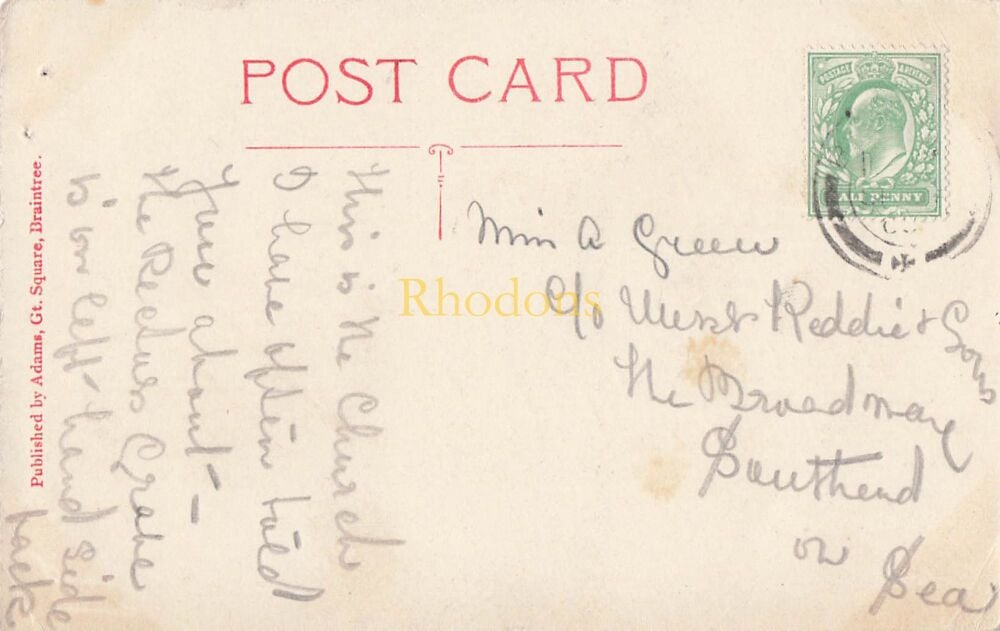 POST CARD
POSTAGE REVENUE
HALF PENNY
Published by Adams, Gt. Square, Braintree.
This is the Church
I have often told
you about -
the Grave
is on left-hand side
back
Miss A Green
c/o Messrs Reddie & Sons
The Broadway
Southend
on Sea
Rhodons